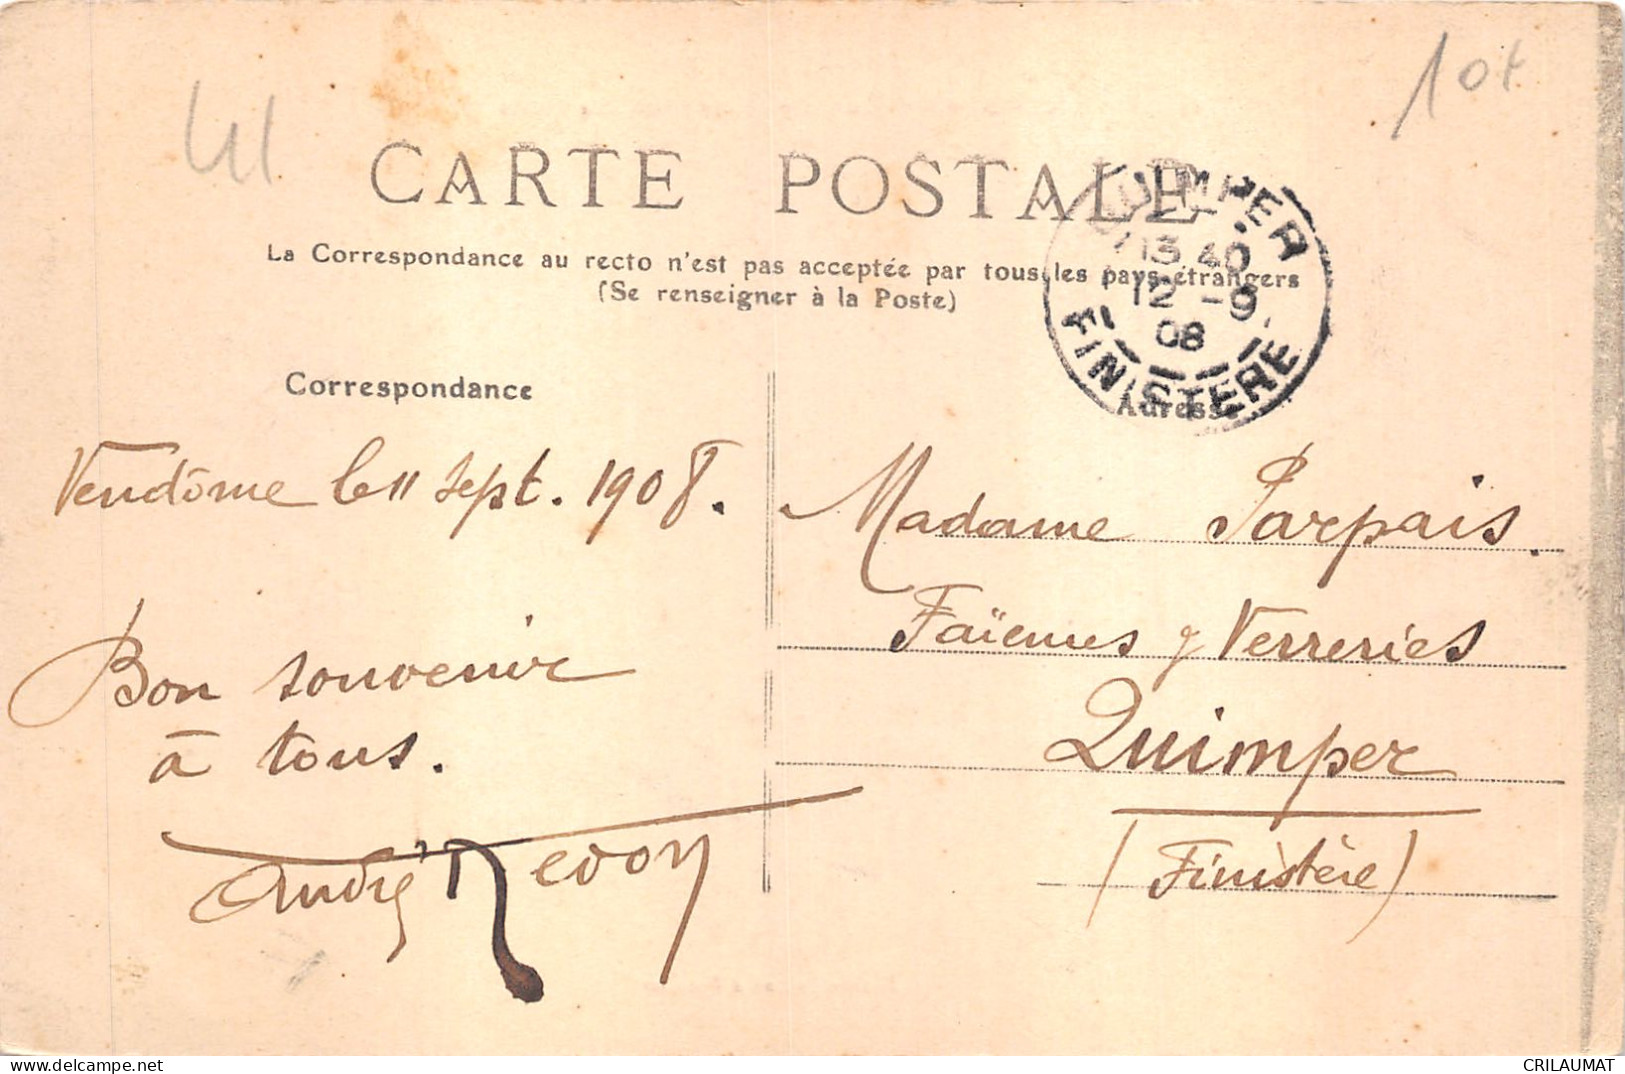 41
10t
CARTE POSTALE
La Correspondance au recto n'est pas acceptée par tous les pays étrangers
(Se renseigner à la Poste)
QUIMPER
13 40
12 -9
08
FINISTERE
Correspondance
Adresse
Vendôme le 11 sept. 1908.
Bon souvenir
à tous.
André
Madame Parpais.
Faïences & Verreries
Quimper
(Finistère)
delcampe.net
CRILAUMAT